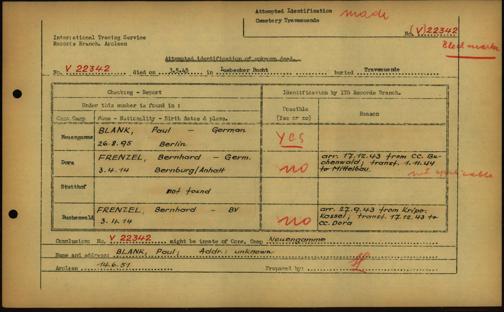 Attempted Identification
Cemetery Travemuende
made
No. (V)22342
International Tracing Service
Records Branch, Arolsen
Attempted identification of unknown dead.
No. V 22342 died on 3.5.45 in Luebecker Bucht buried Travemuende
Checking - Report
Identification by ITS Records Branch.
Under this number is found in :
Possible (Yes or no)
Reason
Conc Camp
Name - Nationality - Birth dates & place.
Neuengamme
BLANK, Paul - German
26.8.95 Berlin
yes
Dora
FRENZEL, Bernhard - Germ.
3.4.14 Bernburg/Anhalt
no
arr. 17.12.43 from CC. Bu-
chenwald; transf. 1.11.44
to Mittelbau.
Stutthof
not found
Buchenwald
FRENZEL, Bernhard - BV
3.4.14
no
arr. 27.9.43 from Kripo
Kassel; transf. 17.12.43 to
CC. Dora
Conclusion: No. V 22342 might be inmate of Conc. Camp Neuengamme
Name and address: BLANK, Paul; Addr.: unknown
Arolsen 14.6.51 Prepared by: